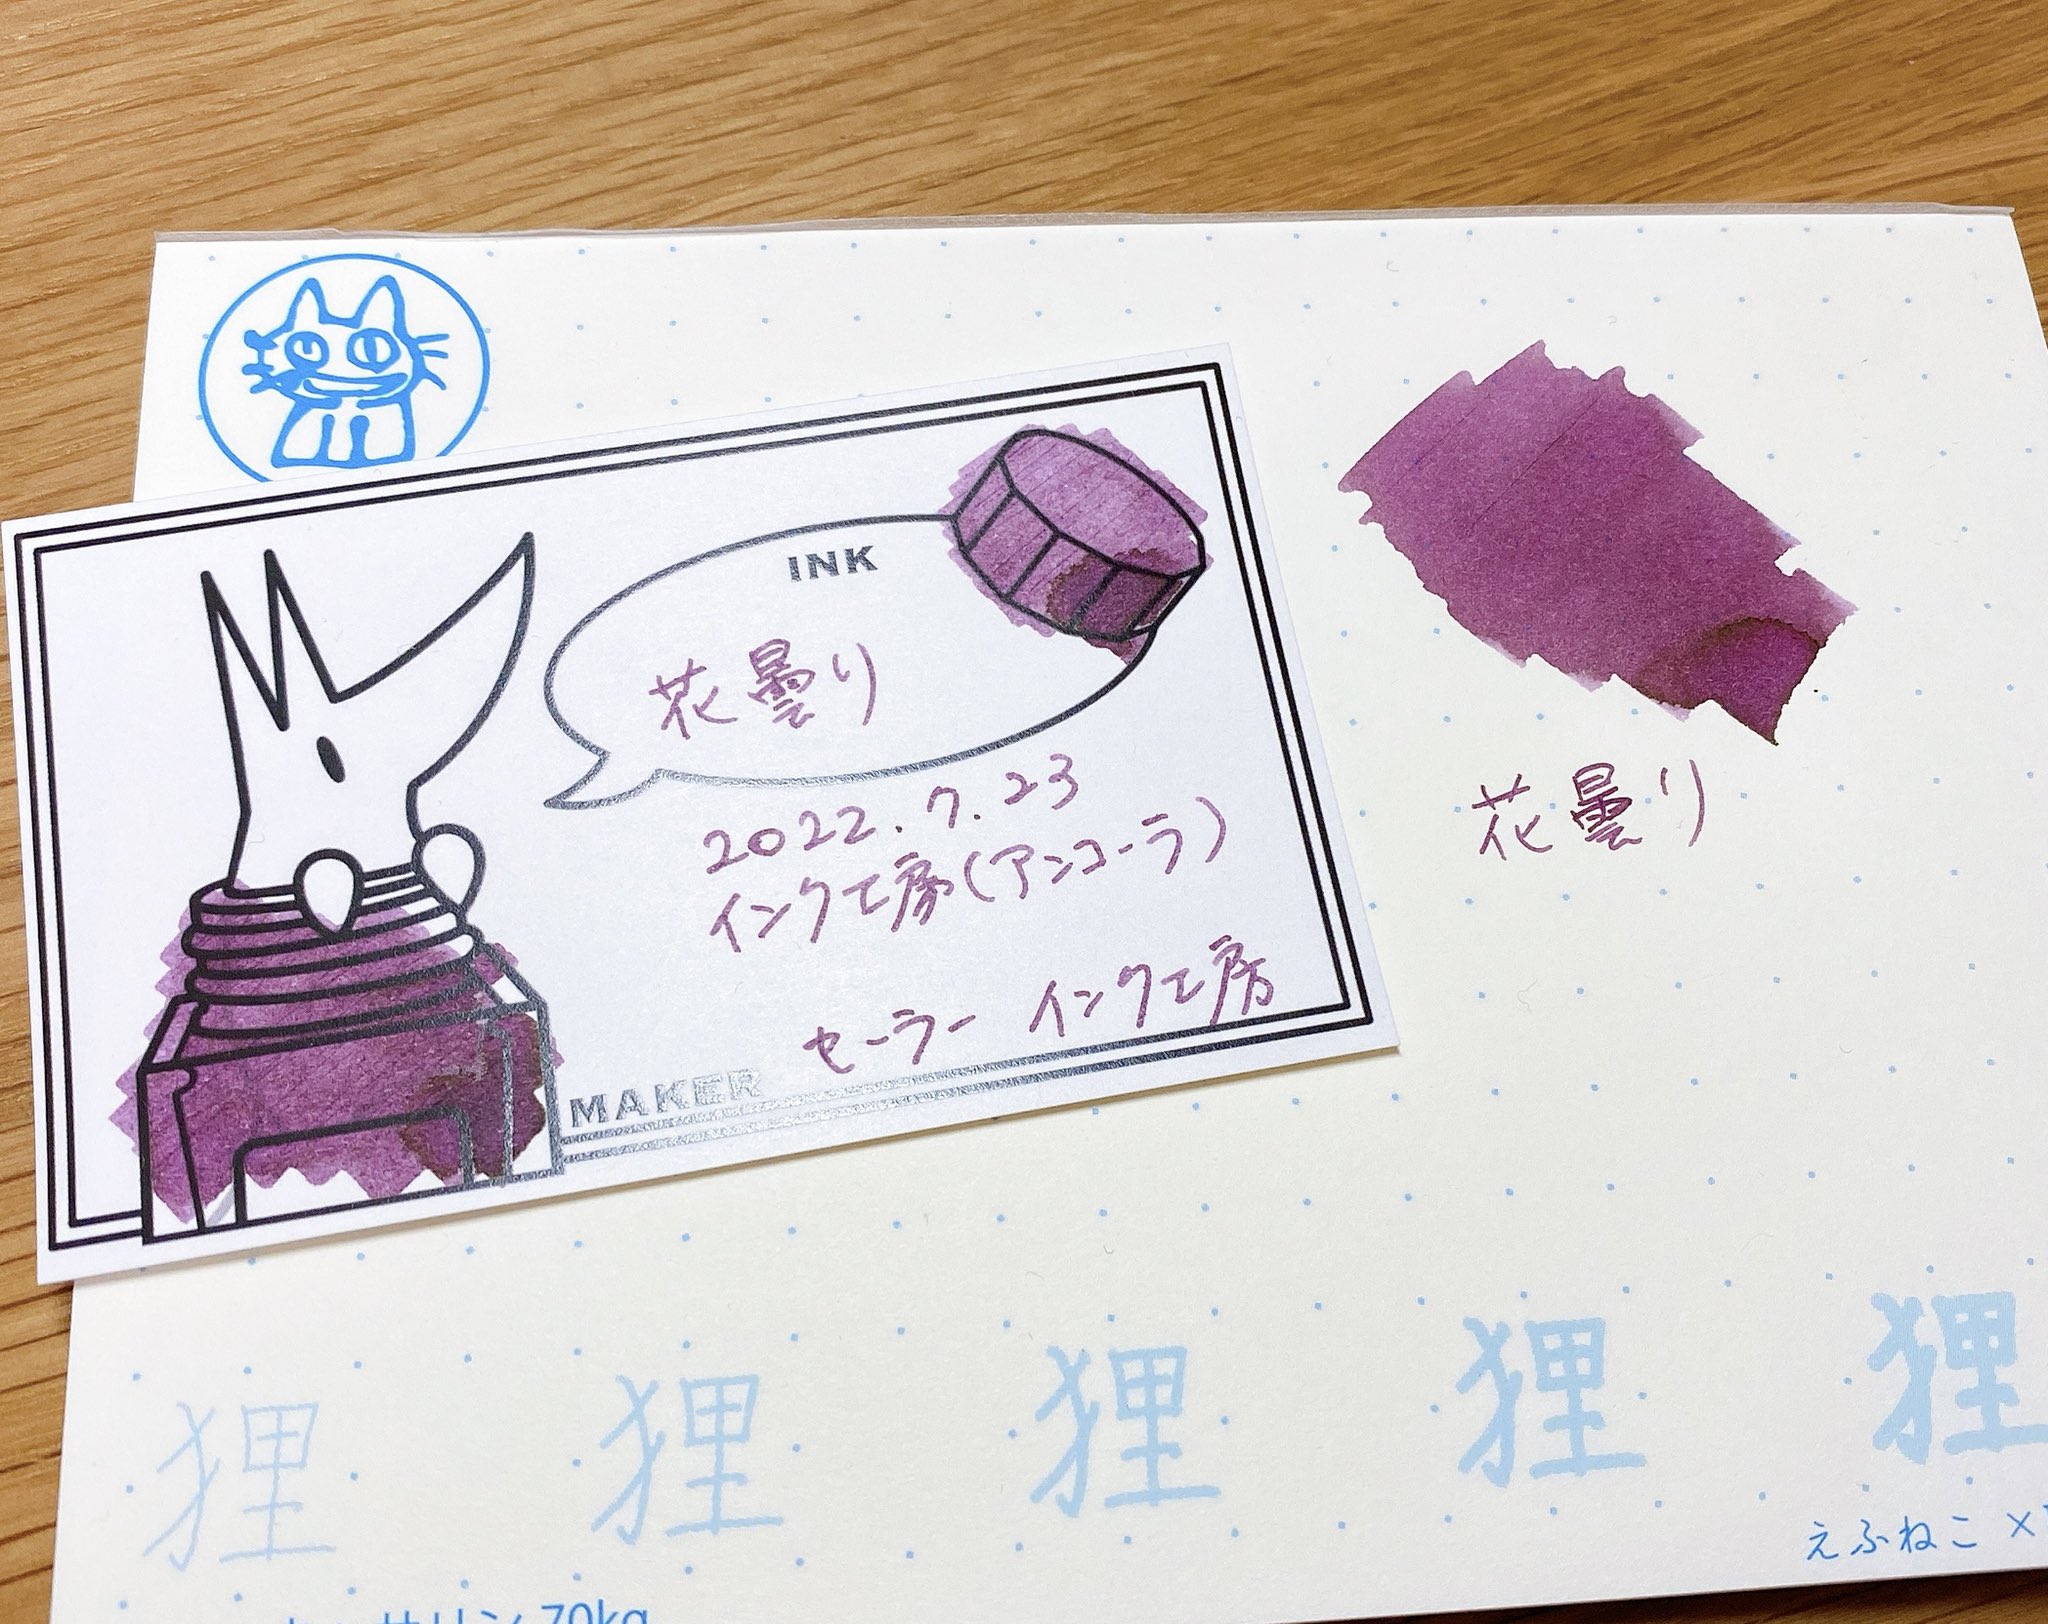 INK
花曇り
2022.7.23
インク工房(アンコーラ)
セーラー インク工房
MAKER
花曇り
狸 狸 狸 狸 狸
えふねこ ×
70kg